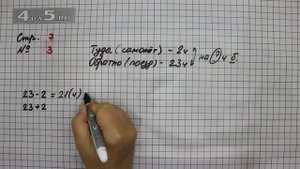 4АПЯ5.RU
Стр. 7
№ 3
Туда (самолёт) - 2ч
Обратно (поезд) - 23ч
на ? ч б.
23-2 = 21(ч)
23+2